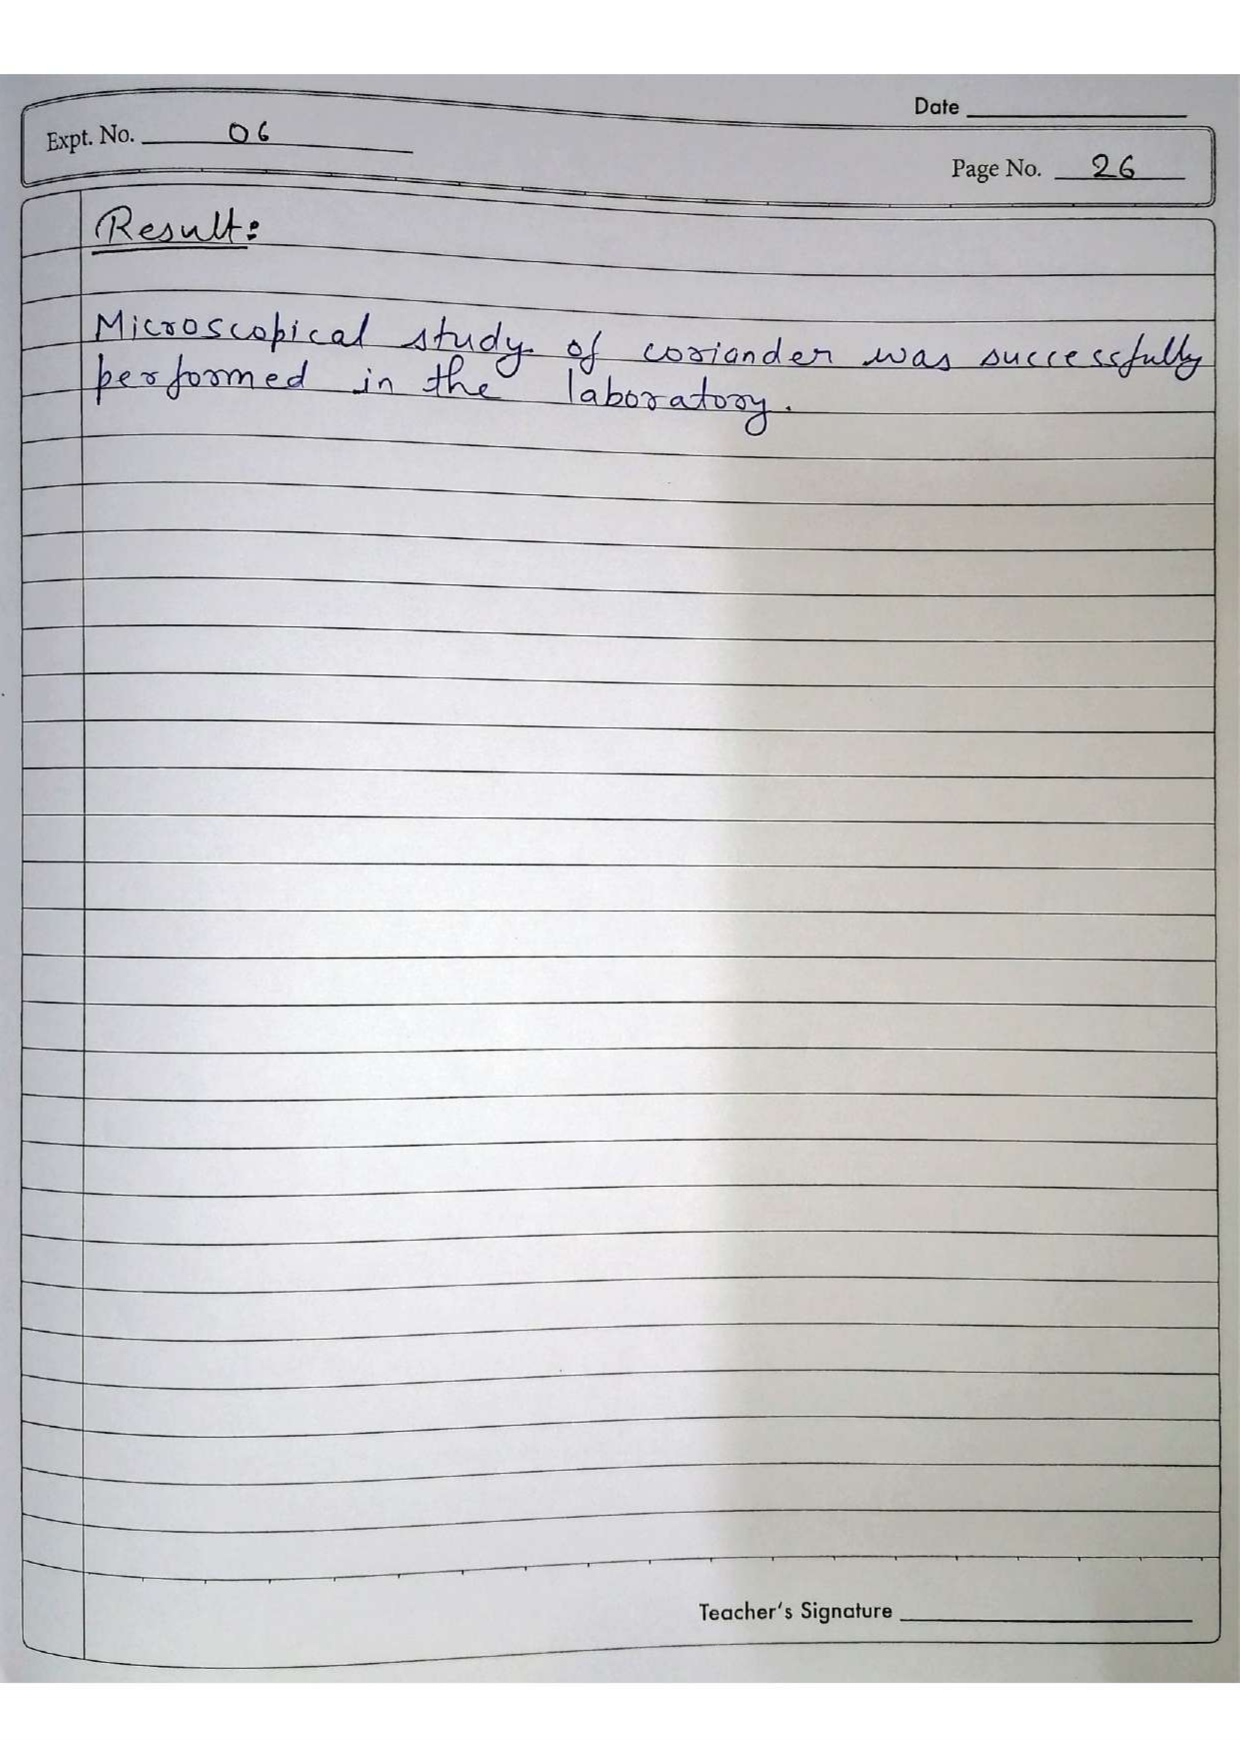 Date
Expt. No. 06
Page No. 26
Result:
Microscopical study of coriander was successfully
performed in the laboratory.
Teacher's Signature